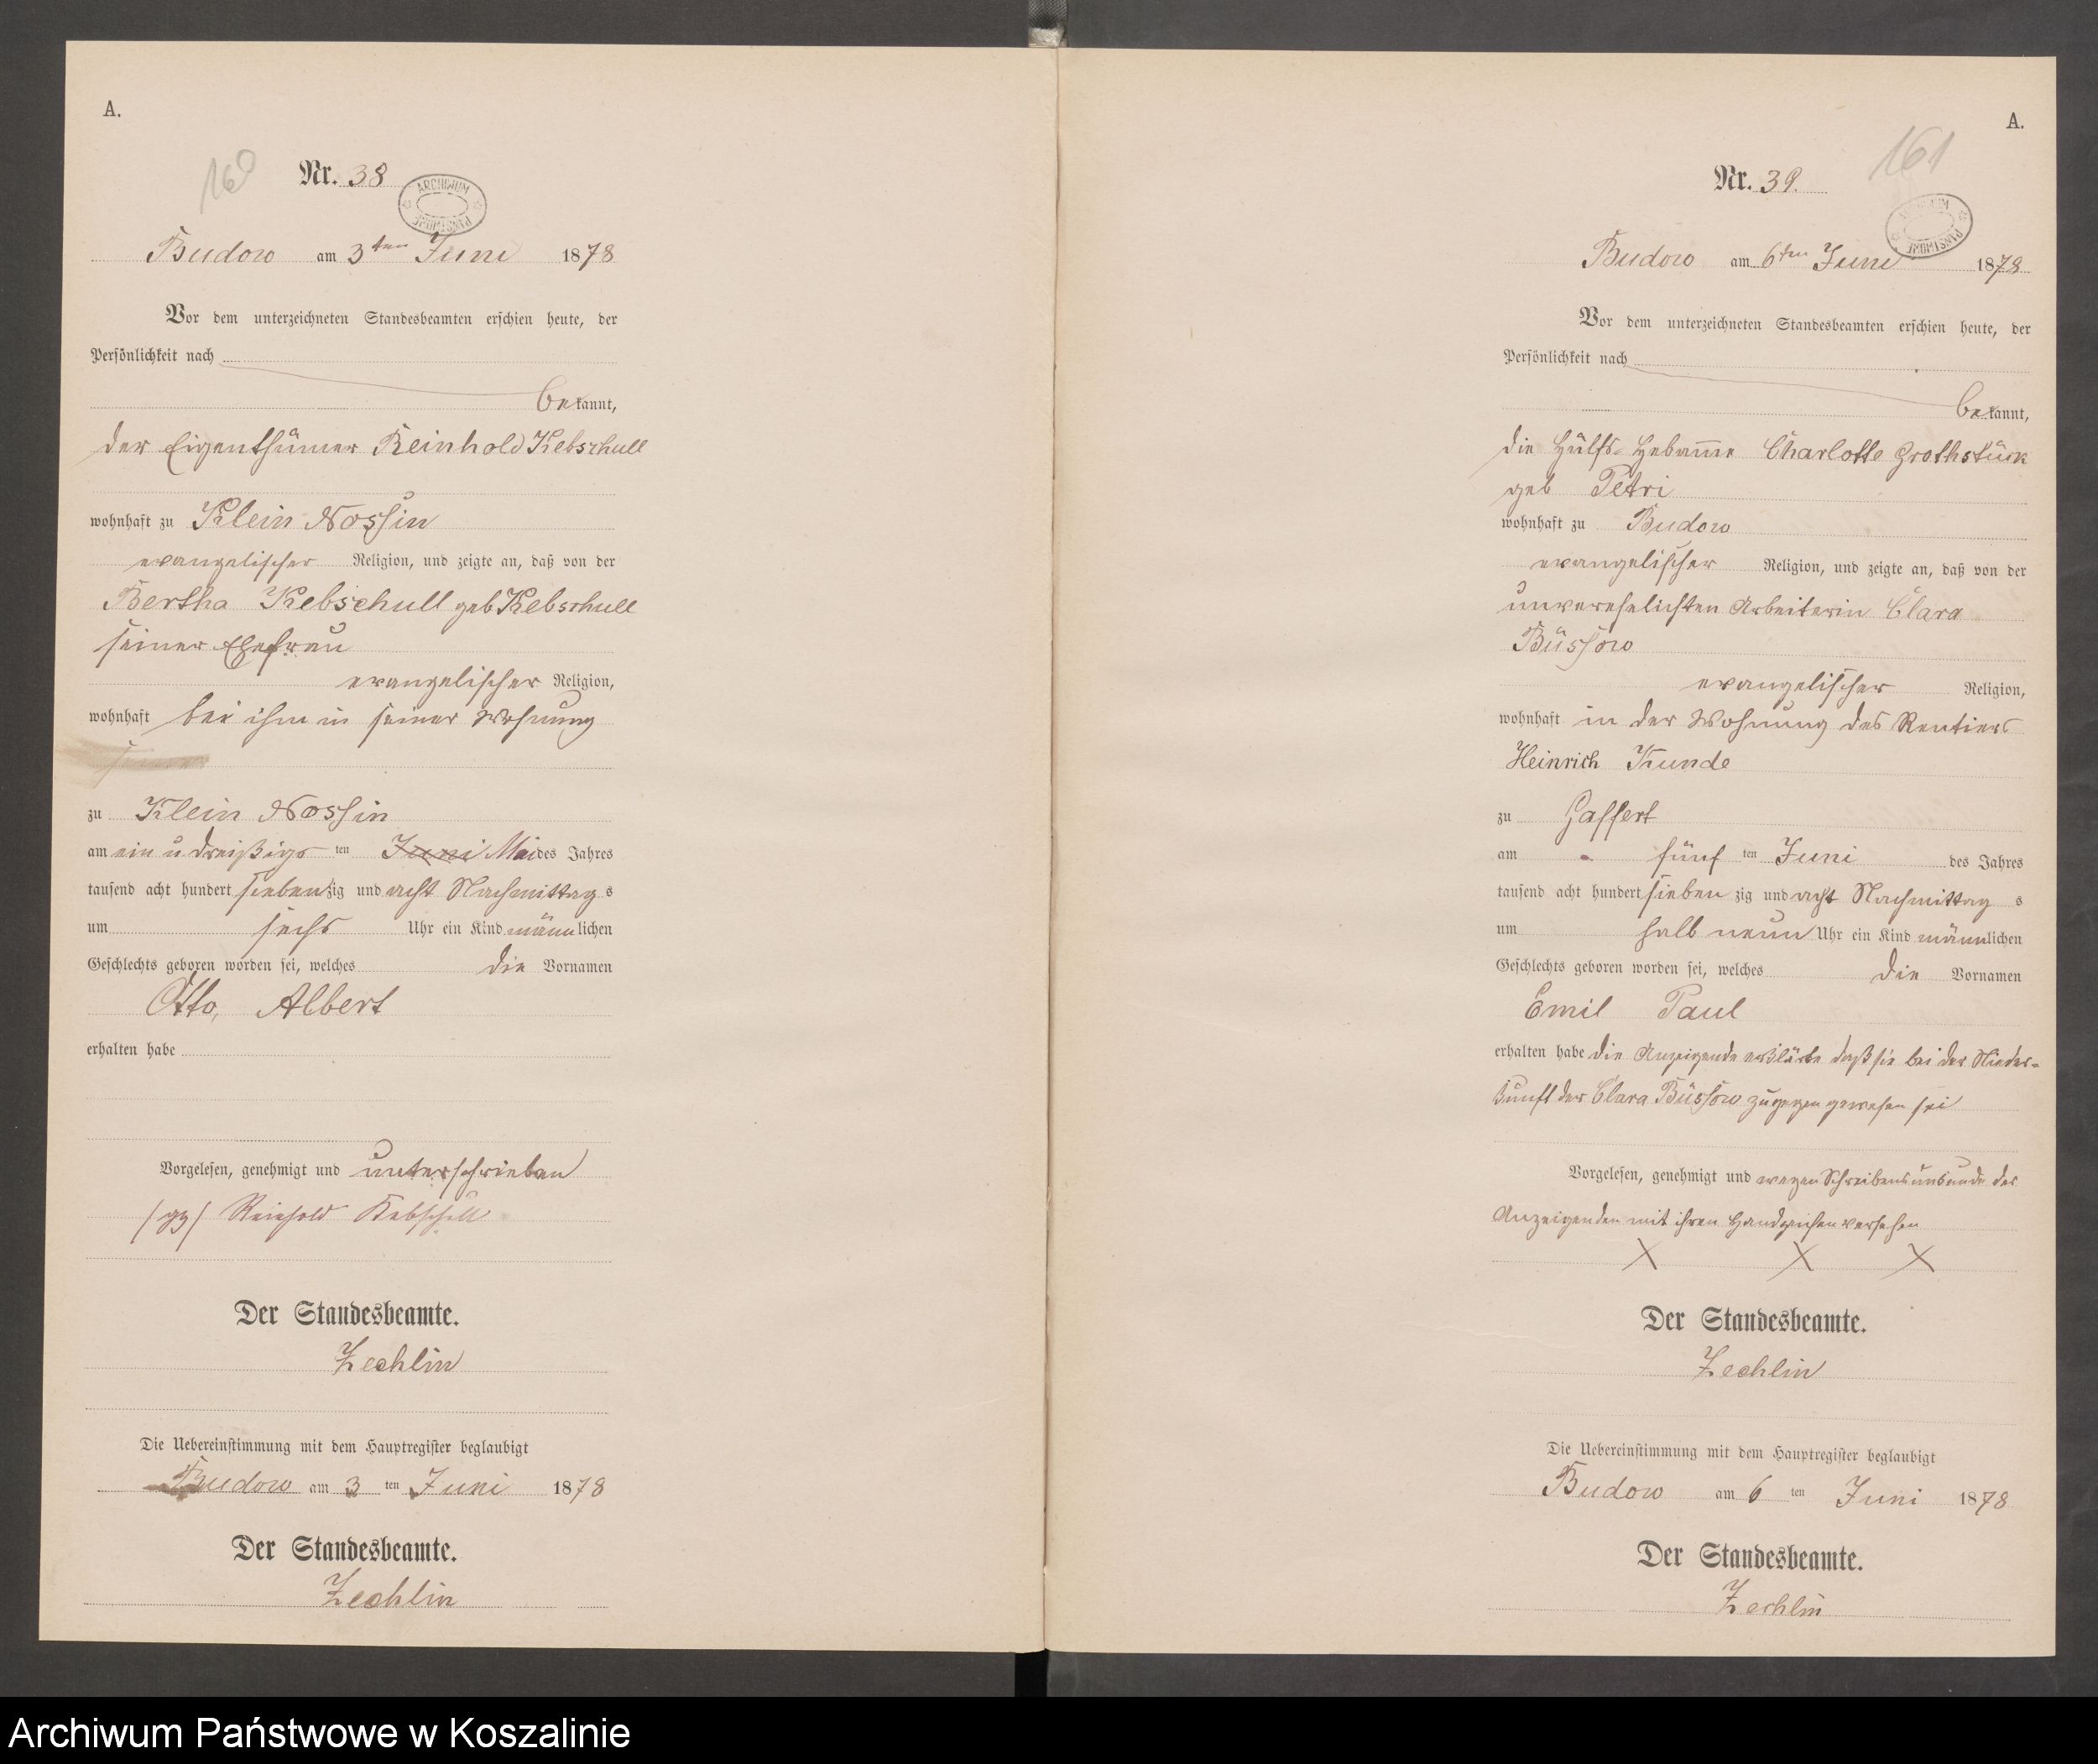 A.
160
Nr. 38
ARCHIWUM PAŃSTWOWE
Budow am 3ten Juni 1878
Vor dem unterzeichneten Standesbeamten erschien heute, der
Persönlichkeit nach
bekannt,
der Eigenthümer Reinhold Kebschull
wohnhaft zu Klein Nossin
evangelischer Religion, und zeigte an, daß von der
Bertha Kebschull geb Kebschull
seiner Ehefrau
evangelischer Religion,
wohnhaft bei ihm in seiner Wohnung
zu Klein Nossin
am ein u dreißigs ten Juni Mai des Jahres
tausend acht hundert siebenzig und acht Nachmittags
um sechs Uhr ein Kind männlichen
Geschlechts geboren worden sei, welches die Vornamen
Otto, Albert
erhalten habe
Vorgelesen, genehmigt und unterschrieben
/gz/ Reinhold Kebschull
Der Standesbeamte.
Zechlin
Die Uebereinstimmung mit dem Hauptregister beglaubigt
Budow am 3 ten Juni 1878
Der Standesbeamte.
Zechlin
A.
161
Nr. 39.
ARCHIWUM PAŃSTWOWE
Budow am 6ten Juni 1878
Vor dem unterzeichneten Standesbeamten erschien heute, der
Persönlichkeit nach
bekannt,
die Hülfs-Hebamme Charlotte Grothstück
geb Petri
wohnhaft zu Budow
evangelischer Religion, und zeigte an, daß von der
unverehelichten Arbeiterin Clara
Büssow
evangelischer Religion,
wohnhaft in der Wohnung des Rentiers
Heinrich Kunde
zu Gaffert
am fünf ten Juni des Jahres
tausend acht hundert sieben zig und acht Nachmittag s
um halb neun Uhr ein Kind männlichen
Geschlechts geboren worden sei, welches die Vornamen
Emil Paul
erhalten habe die Anzeigende erklärte daß sie bei der Nieder-
kunft der Clara Büssow zugegen gewesen sei
Vorgelesen, genehmigt und wegen Schreibensunkunde der
Anzeigenden mit ihren Handzeichen versehen
X X X
Der Standesbeamte.
Zechlin
Die Uebereinstimmung mit dem Hauptregister beglaubigt
Budow am 6 ten Juni 1878
Der Standesbeamte.
Zechlin
Archiwum Państwowe w Koszalinie